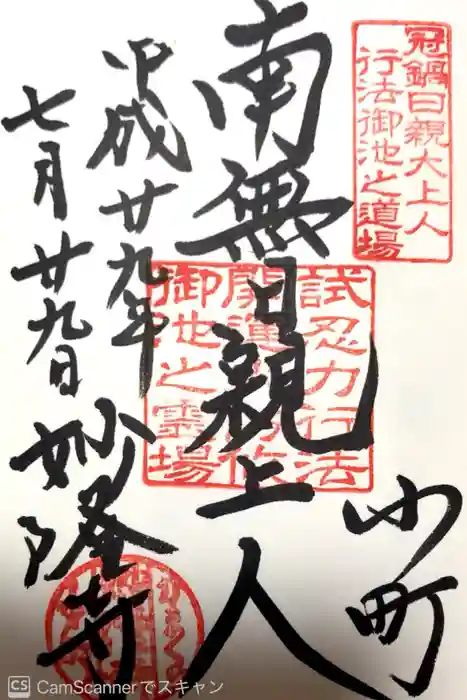 冠鍋日親大上人
行法御池之道場
小町
南無日親上人
試忍力行法
御池之霊場
平成廿九年
七月廿九日
妙隆寺
CS CamScannerでスキャン